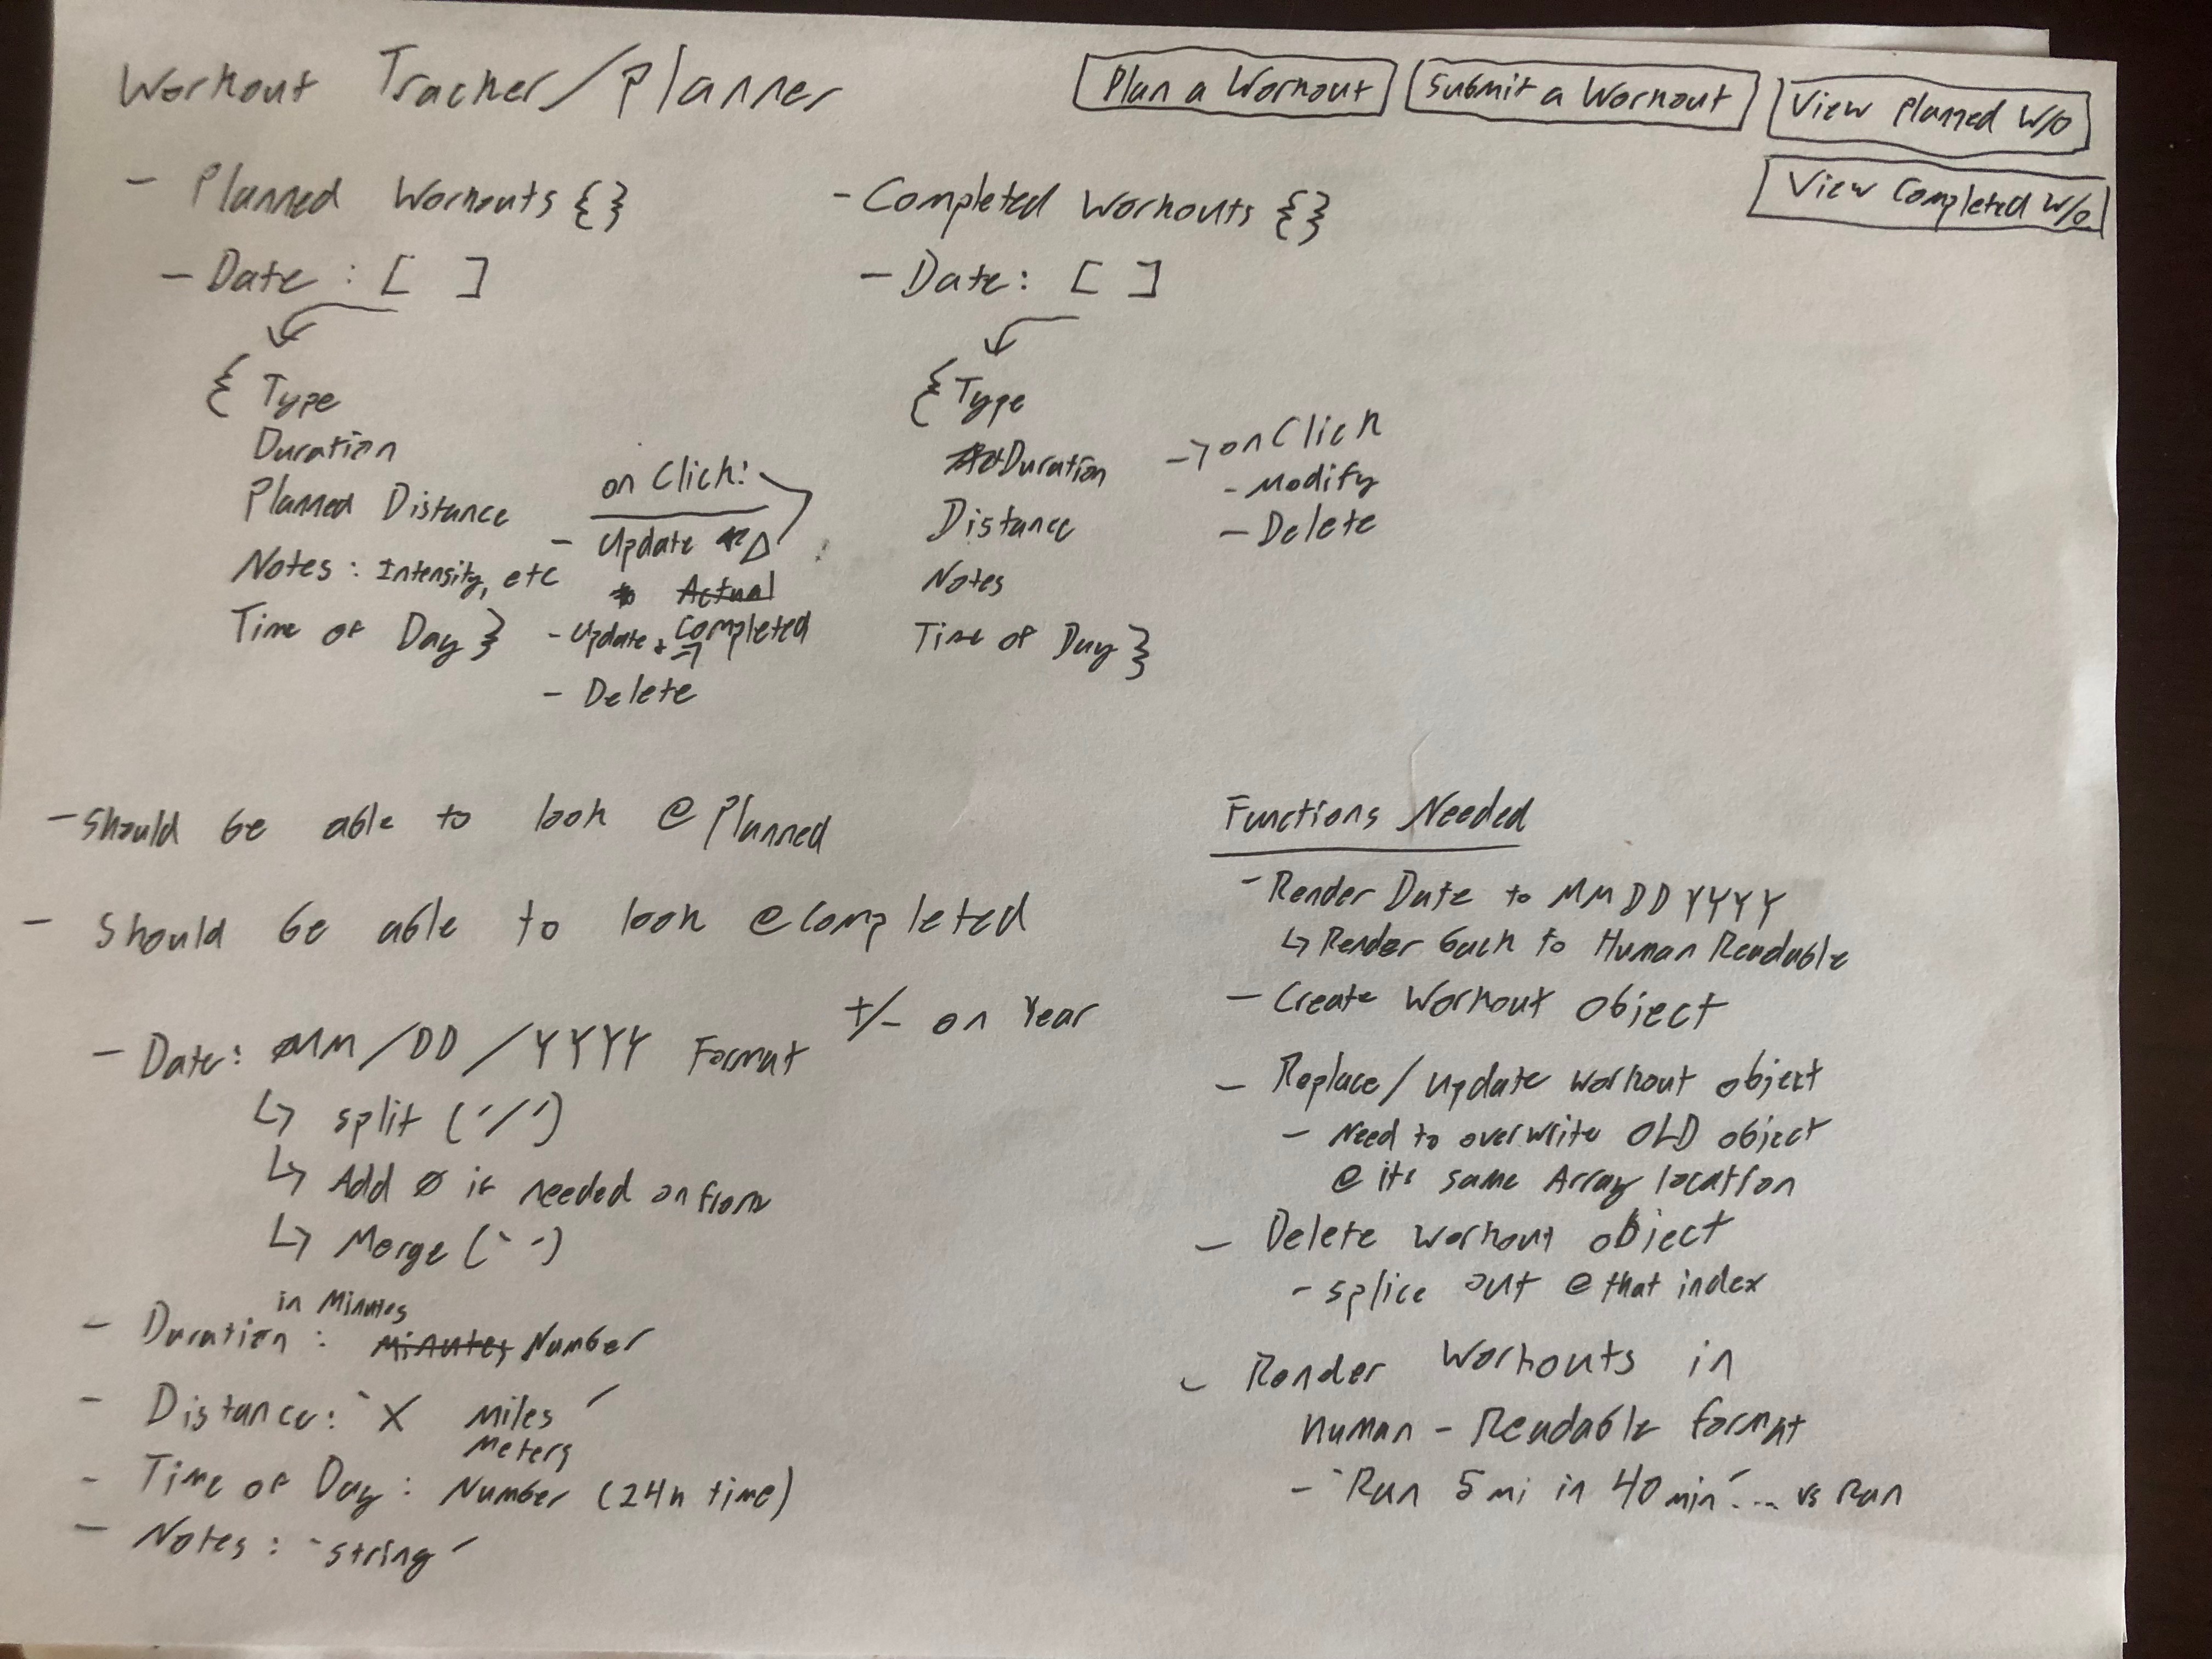 Workout Tracker/Planner
Plan a Workout
Submit a Workout
View Planned W/O
View Completed W/O
- Planned Workouts {}
- Date : [ ]
{ Type
Duration
Planned Distance
Notes : Intensity, etc
Time of Day }
on Click:
- Update
Actual
- Update + Completed
- Delete
- Completed Workouts {}
- Date : [ ]
{ Type
Duration
Distance
Notes
Time of Day }
→ onClick
- Modify
- Delete
- Should be able to look @ Planned
- Should be able to look @ Completed
- Date: MM/DD/YYYY Format +/- on Year
↳ split ('/')
↳ Add Ø if needed on front
↳ Merge (' ')
in Minutes
- Duration : Minutes Number
- Distance: 'X miles'
Meters
- Time of Day : Number (24h time)
- Notes : 'string'
Functions Needed
- Render Date to MMDDYYYY
↳ Render back to Human Readable
- Create Workout Object
- Replace/Update Workout object
- Need to overwrite OLD object
@ its same Array location
- Delete Workout object
- splice out @ that index
- Render Workouts in
Human-Readable format
- 'Run 5 mi in 40 min'... vs Run